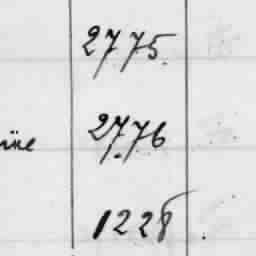 2775.
2776
1228.